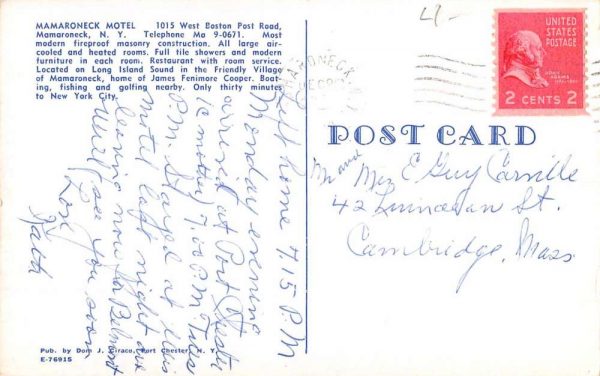 MAMARONECK MOTEL 1015 West Boston Post Road,
Mamaroneck, N. Y. Telephone Ma 9-0671. Most
modern fireproof masonry construction. All large air-
cooled and heated rooms. Full tile showers and modern
furniture in each room. Restaurant with room service.
Located on Long Island Sound in the Friendly Village
of Mamaroneck, home of James Fenimore Cooper. Boat-
ing, fishing and golfing nearby. Only thirty minutes
to New York City.
Left home 7.15 P.M
Monday evening
arrived at Port
7.00
P.M. Stayed at this
motel last night are
leaving now for Belmont
Will see you soon
Love
UNITED
STATES
POSTAGE
JOHN
ADAMS
2 CENTS 2
POST CARD
Mr and Mrs E Guy Carville
42 Linnaean St.
Cambridge, Mass
Pub. by Dom J. Port Chester, N. Y.
E-76915